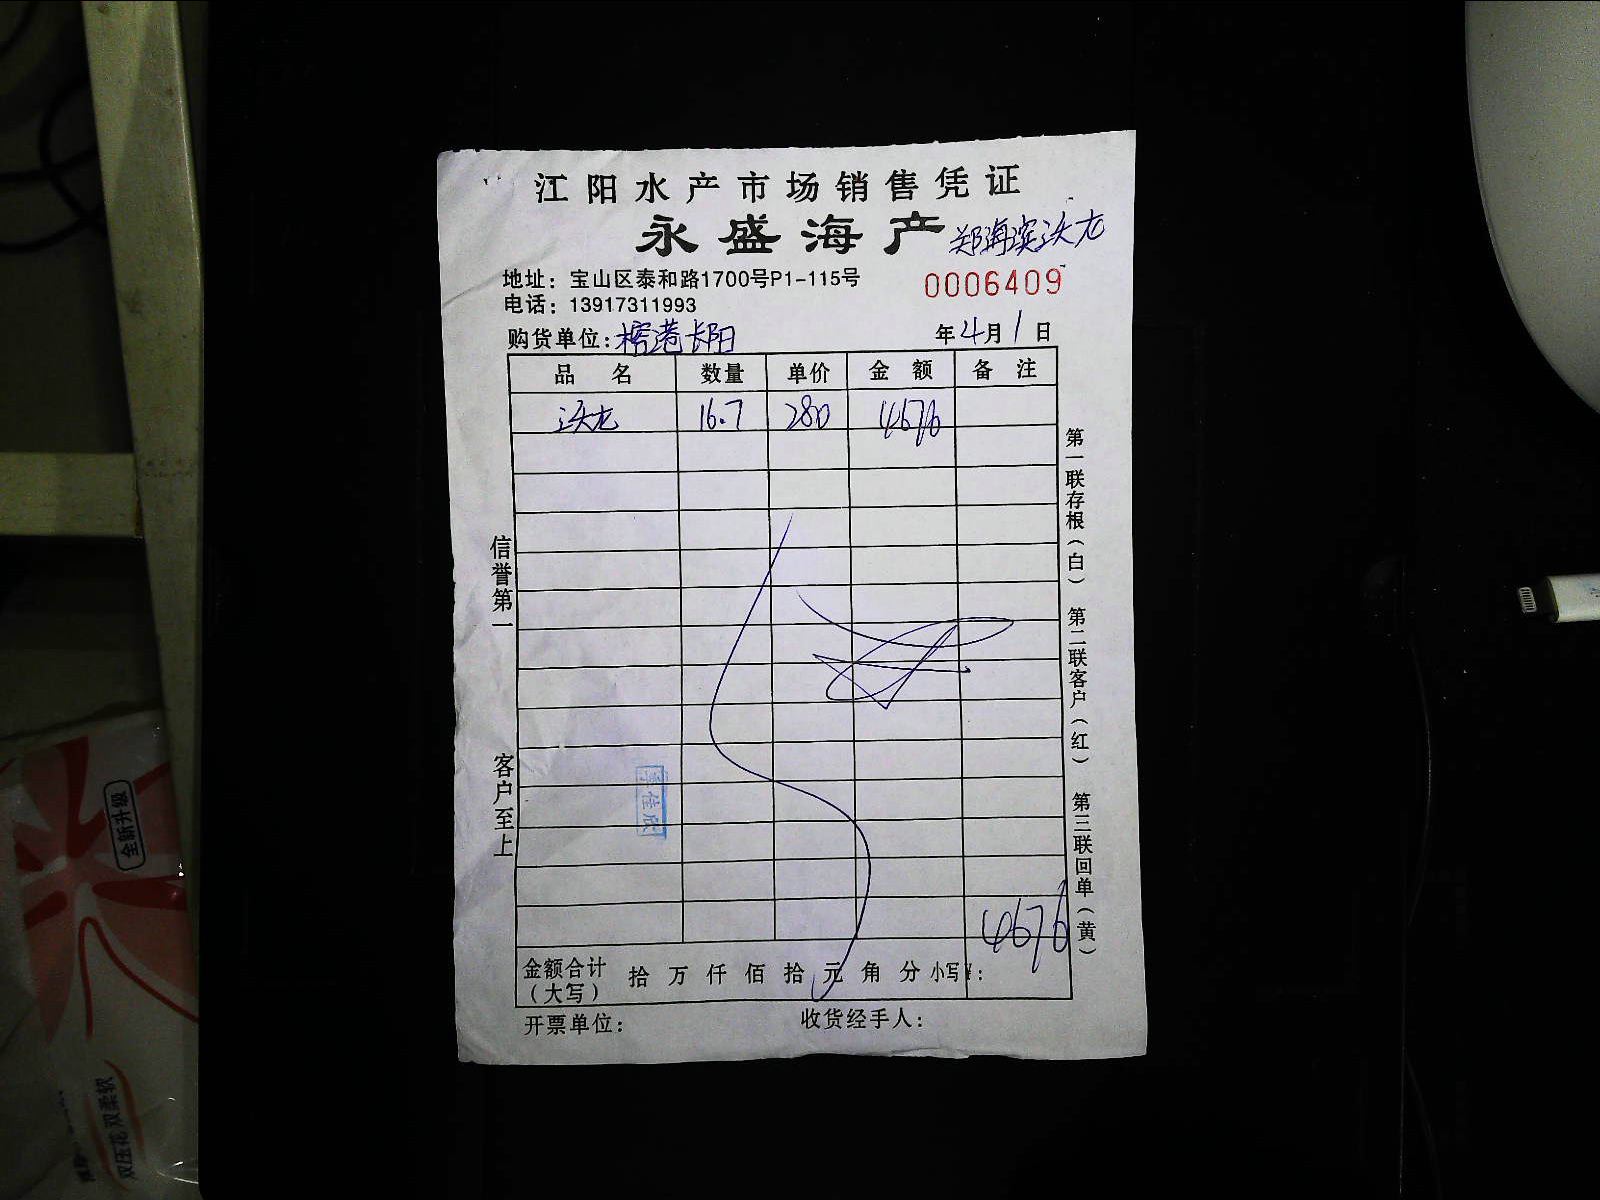 江阳水产市场销售凭证
永盛海产 郑海滨沃龙
地址：宝山区泰和路1700号P1-115号
0006409
电话：13917311993
购货单位：榕港长阳
年4月1日
品名 数量 单价 金额 备注
沃龙 16.7 280 4676
4676
金额合计（大写） 拾 万 仟 佰 拾 元 角 分 小写¥：
开票单位： 收货经手人：
信誉第一 客户至上
第一联存根（白） 第二联客户（红） 第三联回单（黄）
李佳欣
全新升级
双压花 双柔软